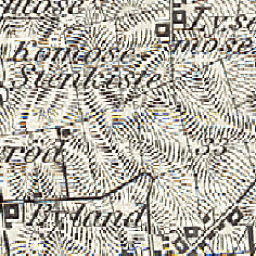 mose
Lyse
mose
Komose
Stenkiste
rød
33
Byland